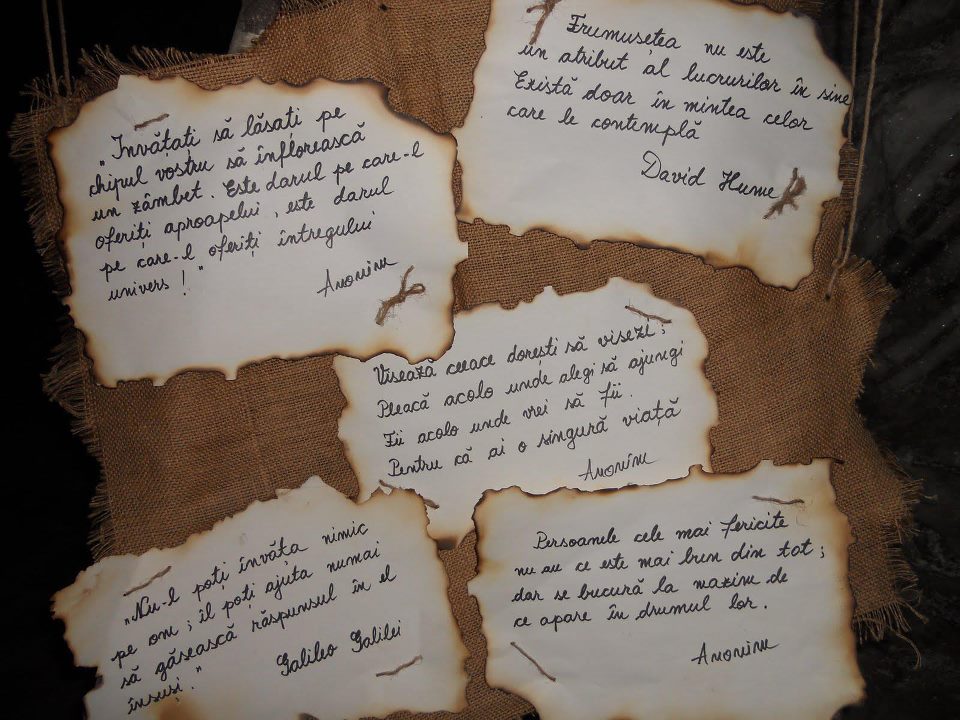 „Învățați să lăsați pe
chipul vostru să înflorească
un zâmbet. Este darul pe care-l
oferiți aproapelui, este darul
pe care-l oferiți întregului
univers!"
Anonim
Frumusețea nu este
un atribut al lucrurilor în sine
Există doar în mintea celor
care le contemplă
David Hume
Visează ceeace dorești să visezi;
Pleacă acolo unde alegi să ajungi
Fii acolo unde vrei să fii.
Pentru că ai o singură viață
Anonim
„Nu-l poți învăța nimic
pe om; îl poți ajuta numai
să găsească răspunsul în el
însuși."
Galileo Galilei
Persoanele cele mai fericite
nu au ce este mai bun din tot;
dar se bucură la maxim de
ce apare în drumul lor.
Anonim